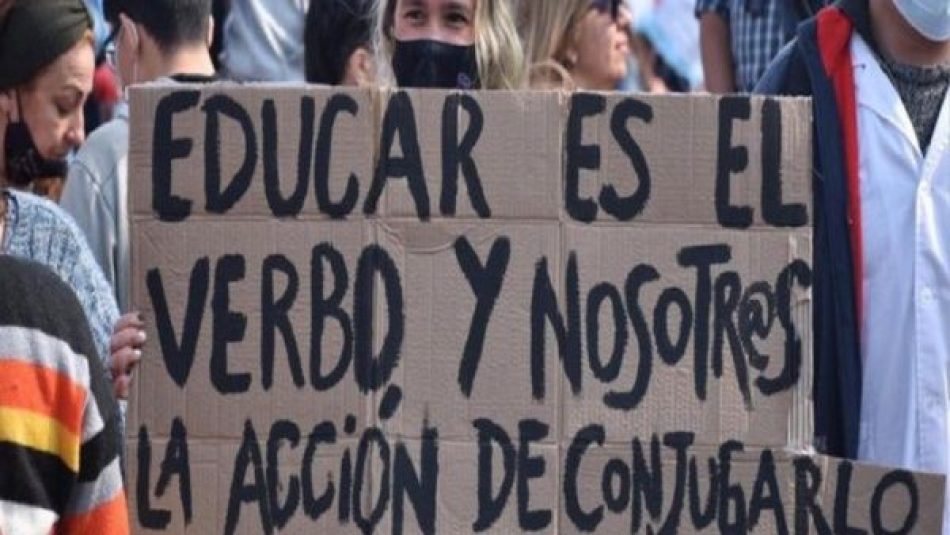 EDUCAR ES EL
VERBO Y NOSOTR@S
LA ACCIÓN DE CONJUGARLO